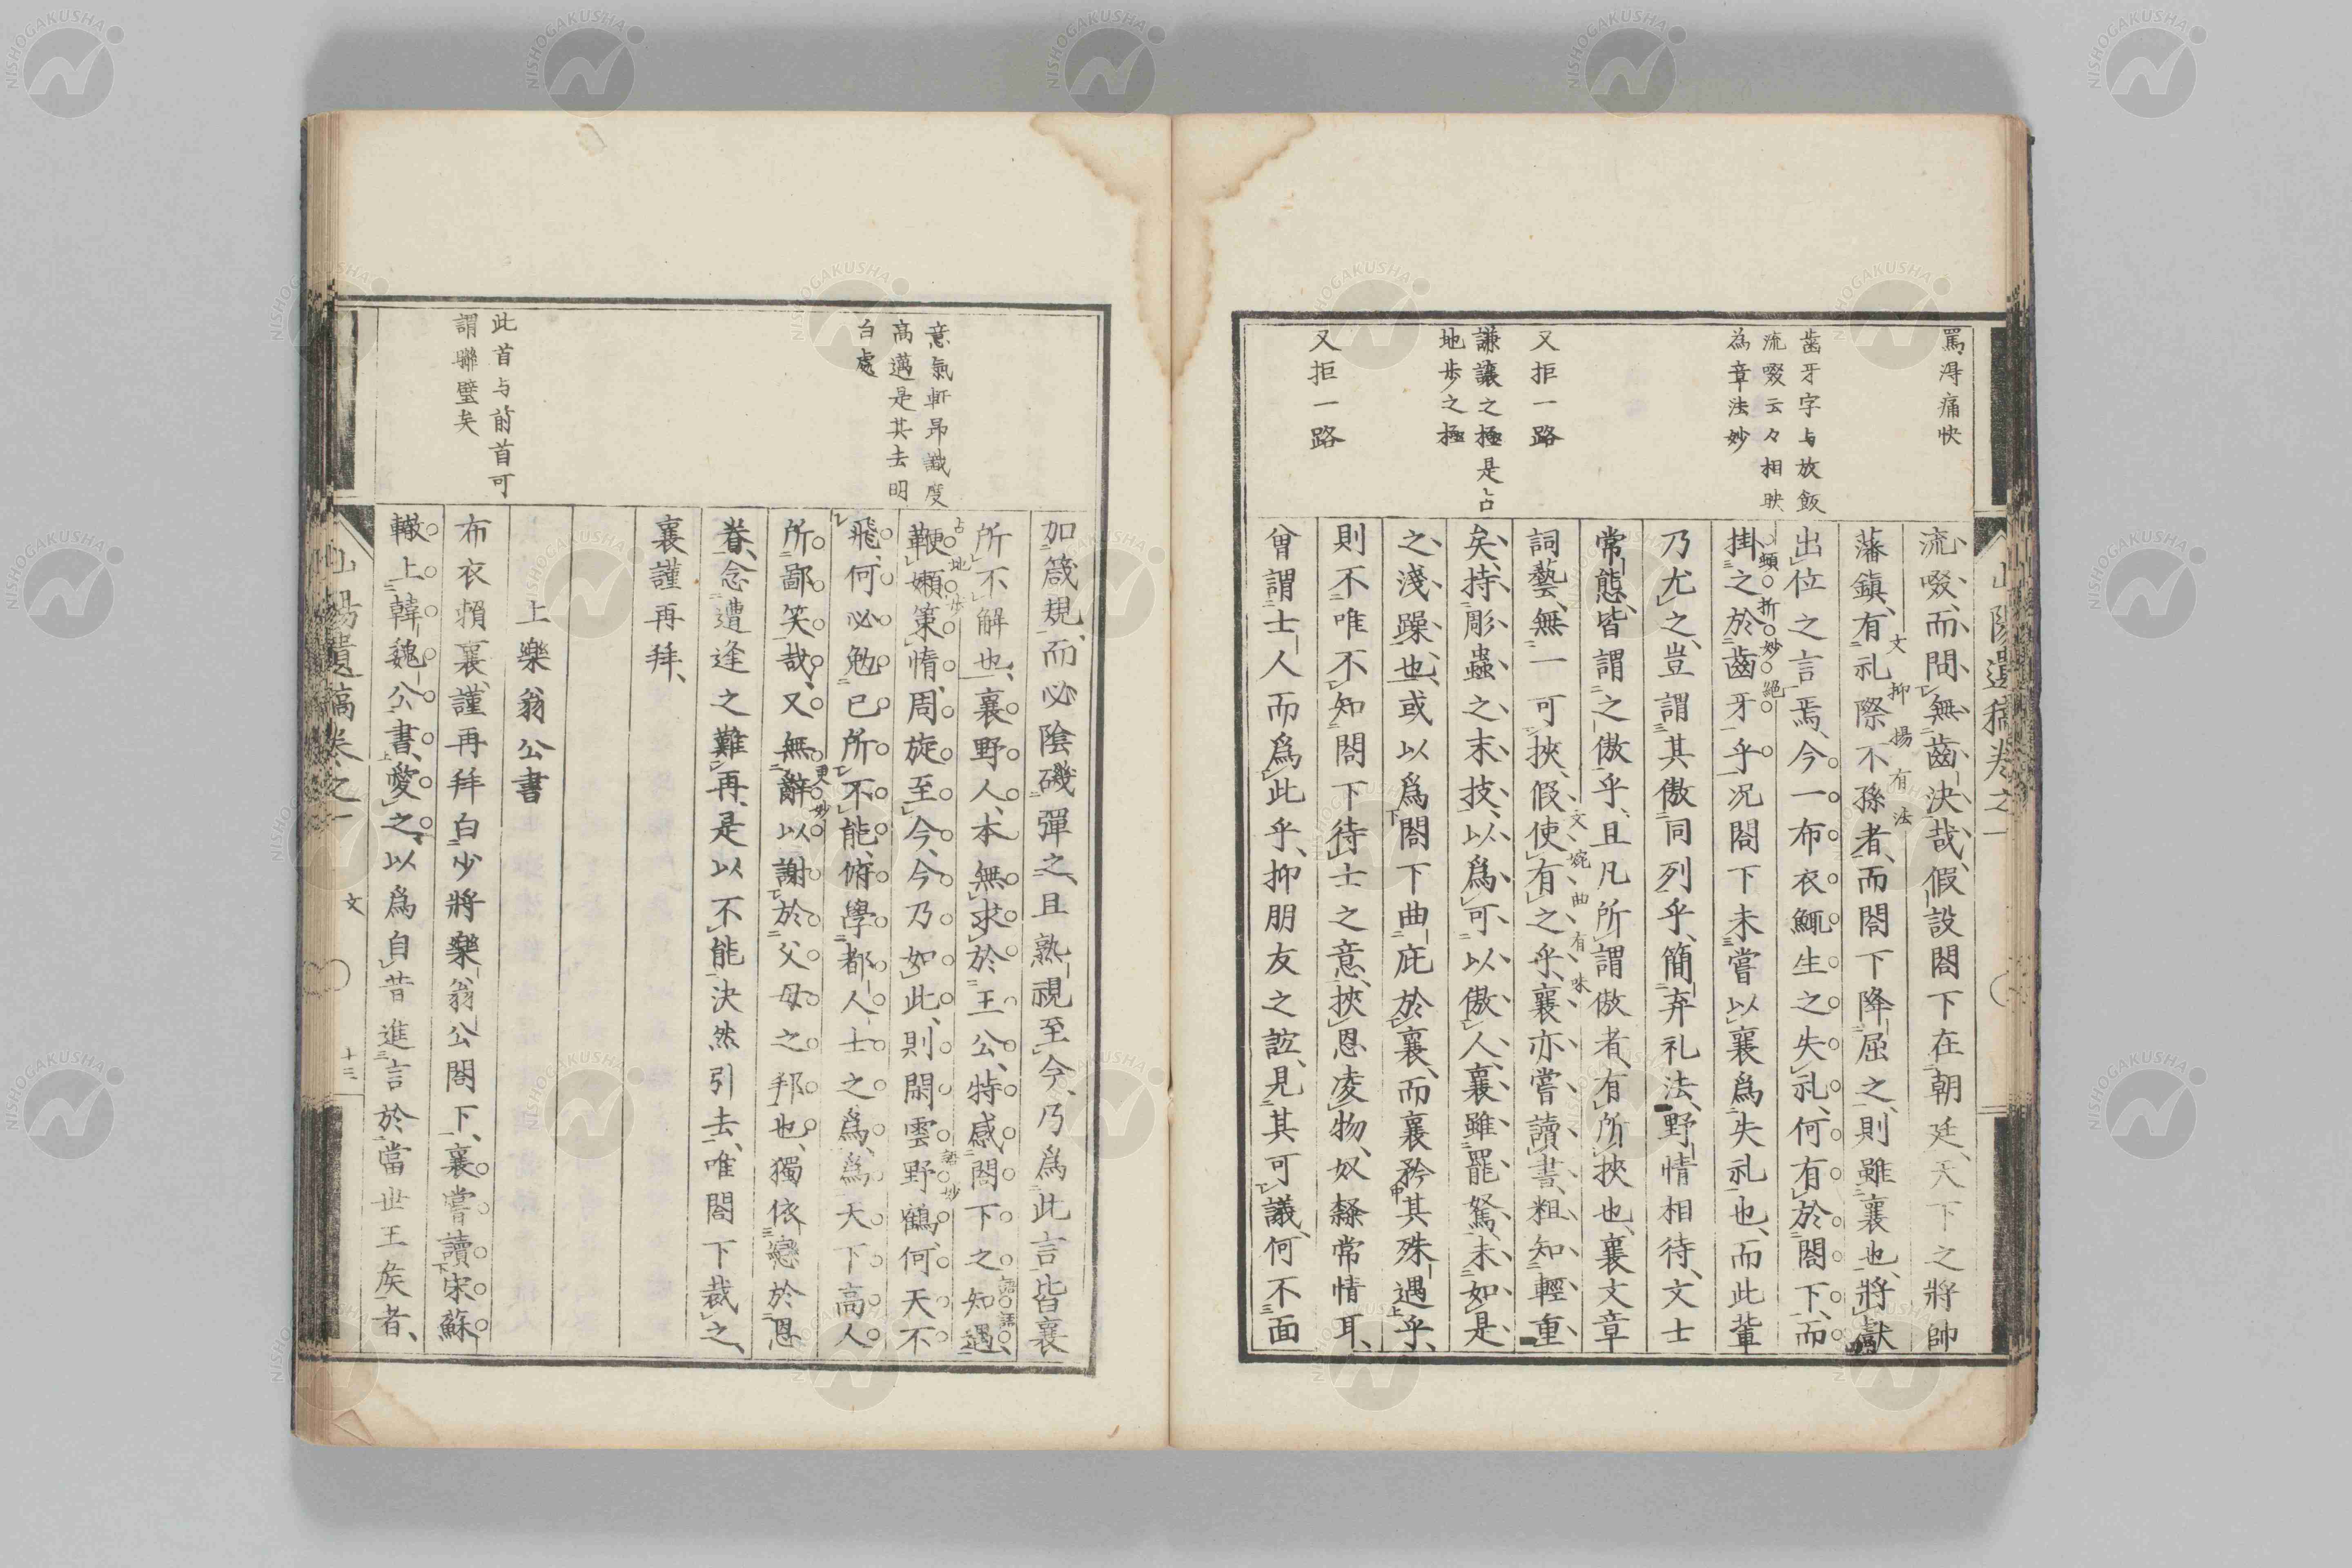 山陽遺稿卷之一
罵得痛快
齒牙字与放飯
流啜云々相映
為章法妙
又拒一路
謙讓之極是占
地歩之極
又拒一路
流啜、而問無齒決哉、假設閤下在朝廷、天下之將帥
藩鎭、有礼際不孫者、而閤下降屈之、則雖襄也、將獻
文抑揚有法
出位之言焉、今一布衣鯫生之失礼、何有於閤下、而
掛之於齒牙乎、况閤下未嘗以襄爲失礼也、而此輩
頓折妙絕
乃尤之、豈謂其傲同列乎、簡弃礼法、野情相待、文士
常態、皆謂之傲乎、且凡所謂傲者、有所挾也、襄文章
詞藝、無一可挾、假使有之乎、襄亦嘗讀書、粗知輕重
文婉曲有味
矣、持彫蟲之末技、以爲可以傲人、襄雖罷駑、未如是
之淺躁也、或以爲閤下曲庇於襄、而襄矜其殊遇乎、
則不唯不知閤下待士之意、挾恩凌物、奴隸常情耳、
曾謂士人而爲此乎、抑朋友之誼、見其可議、何不面
意氣軒昂識度
高邁是其去明
白處
此首与前首可
謂聯璧矣
如箴規、而必陰磯彈之、且熟視至今、乃爲此言、皆襄
所不解也、襄野人、本無求於王公、特感閤下之知遇、
占地歩
鞭嬾策惰、周旋至今、今乃如此、則閑雲野鶴、何天不
語妙
飛、何必勉已所不能、俯學都人士之爲、爲天下高人
所鄙笑哉、又無辭以謝於父母之邦也、獨依戀於恩
更妙
眷、念遭逢之難再、是以不能決然引去、唯閤下裁之、
襄謹再拜、
上樂翁公書
布衣賴襄、謹再拜白少將樂翁公閤下、襄嘗讀宋蘇
轍上韓魏公書、愛之、以爲自昔進言於當世王矦者、
山陽遺稿卷之一
文
十三